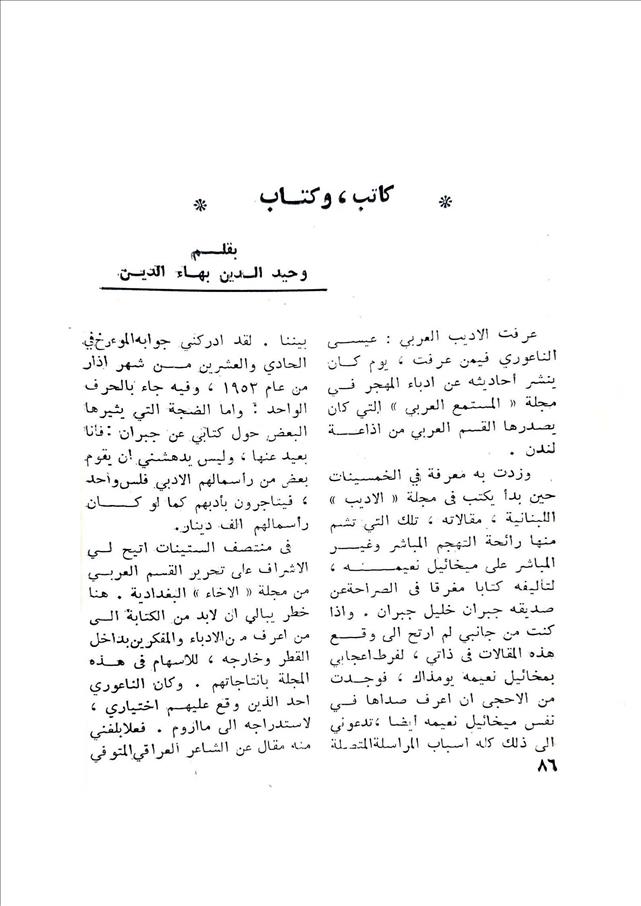 * كاتب ، وكتــاب *
بقلــــم
وحيد الــدين بهــاء الديــن
عرفت الاديب العربي : عيســى
الناعوري فيمن عرفت ، يوم كــان
ينشر أحاديثه عن ادباء المهجر فــي
مجلة « المستمع العربي » التي كان
يصدرها القسم العربي من اذاعــة
لندن .
وزدت به معرفة في الخمسينات
حين بدأ يكتب فى مجلة « الاديب »
اللبنانية ، مقالاته ، تلك التي تشم
منها رائحة التهجم المباشر وغيــر
المباشر على ميخائيل نعيمــــه ،
لتأليفه كتابا مغرقا فى الصراحة عن
صديقه جبران خليل جبران . واذا
كنت من جانبي لم ارتح الى وقــع
هذه المقالات فى ذاتي ، لفرط اعجابي
بمخائيل نعيمه يومذاك ، فوجــدت
من الاحجى ان اعرف صداها فــي
نفس ميخائيل نعيمه أيضا ، تدعوني
الى ذلك كله اسباب المراسلة المتصلة
بيننا . لقد ادركني جوابه الموءرخ في
الحادي والعشرين مــن شهر اذار
من عام ١٩٥٣ ، وفيه جاء بالحرف
الواحد : واما الضجة التي يثيرها
البعض حول كتابي عن جبران : فأنا
بعيد عنها ، وليس يدهشني أن يقوم
بعض من رأسمالهم الادبي فلس واحد
، فيتاجرون بأدبهم كما لو كــــان
رأسمالهم الف دينار.
فى منتصف الستينات اتيح لــي
الاشراف على تحرير القسم العربــي
من مجلة « الاخاء » البغدادية . هنا
خطر ببالي ان لابد من الكتابة الــى
من اعرف من الادباء والمفكرين بداخل
القطر وخارجه ، للاسهام فى هــذه
المجلة بانتاجاتهم . وكان الناعوري
احد الذين وقع عليهم اختياري ،
لاستدراجه الى ما اروم . فعلا بلغني
منه مقال عن الشاعر العراقي المتوفي
٨٦